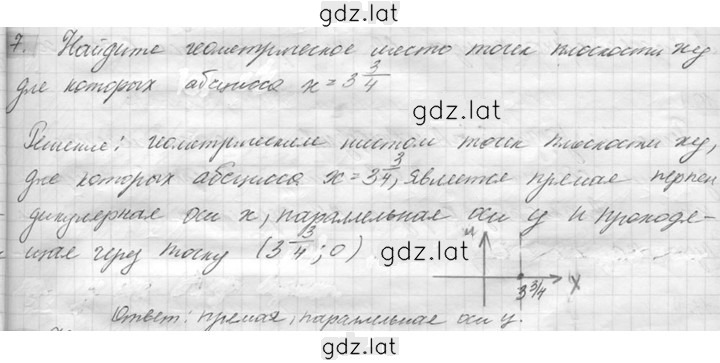 gdz.lat
7. Найдите геометрическое место точек плоскости xy
для которых абсцисса x = 3 3/4
gdz.lat
Решение: геометрическим местом точек плоскости xy,
для которых абсцисса x = 3 3/4, является прямая перпен
дикулярная оси x, параллельная оси y и проходя-
щая через точку (3 3/4; 0)
gdz.lat
y
x
3 3/4
Ответ: прямая, параллельная оси y.
gdz.lat